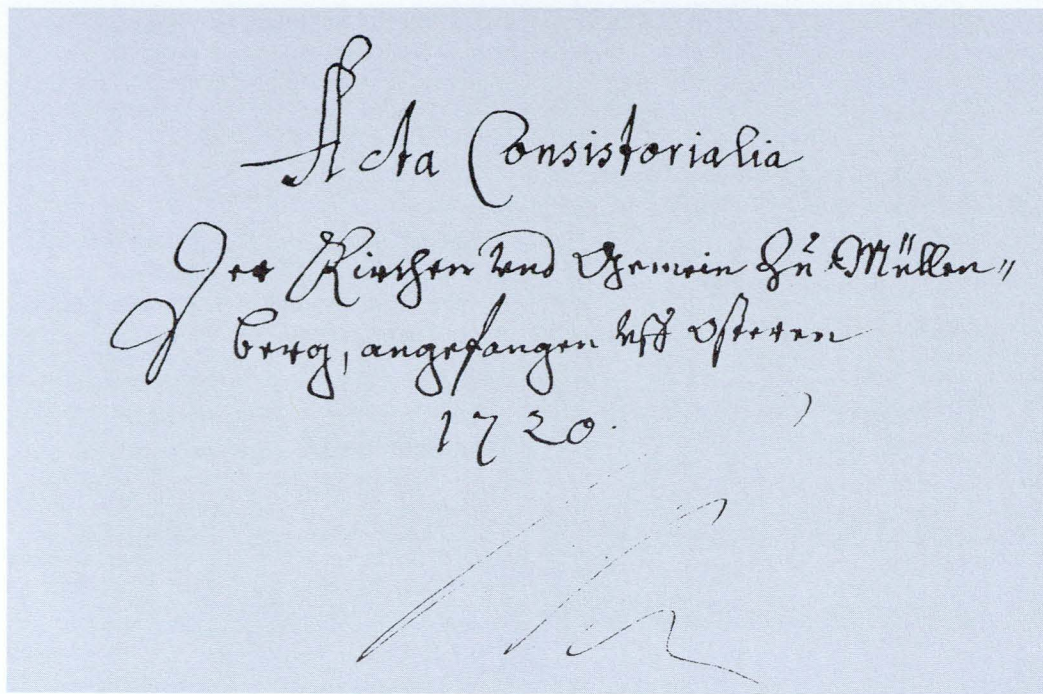 Acta Consistorialia
Der Kirchen vnd Gemein zů Müllen„
berg, angefangen vff Osteren
1720.